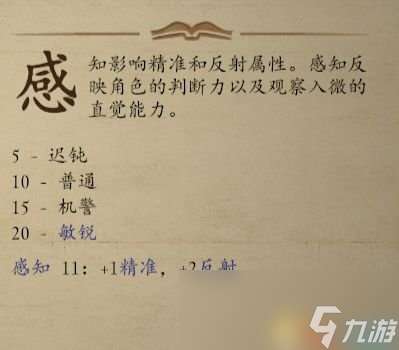 感
知影响精准和反射属性。感知反
映角色的判断力以及观察入微的
直觉能力。
5 - 迟钝
10 - 普通
15 - 机警
20 - 敏锐
感知 11：+1精准，+2反射
九游